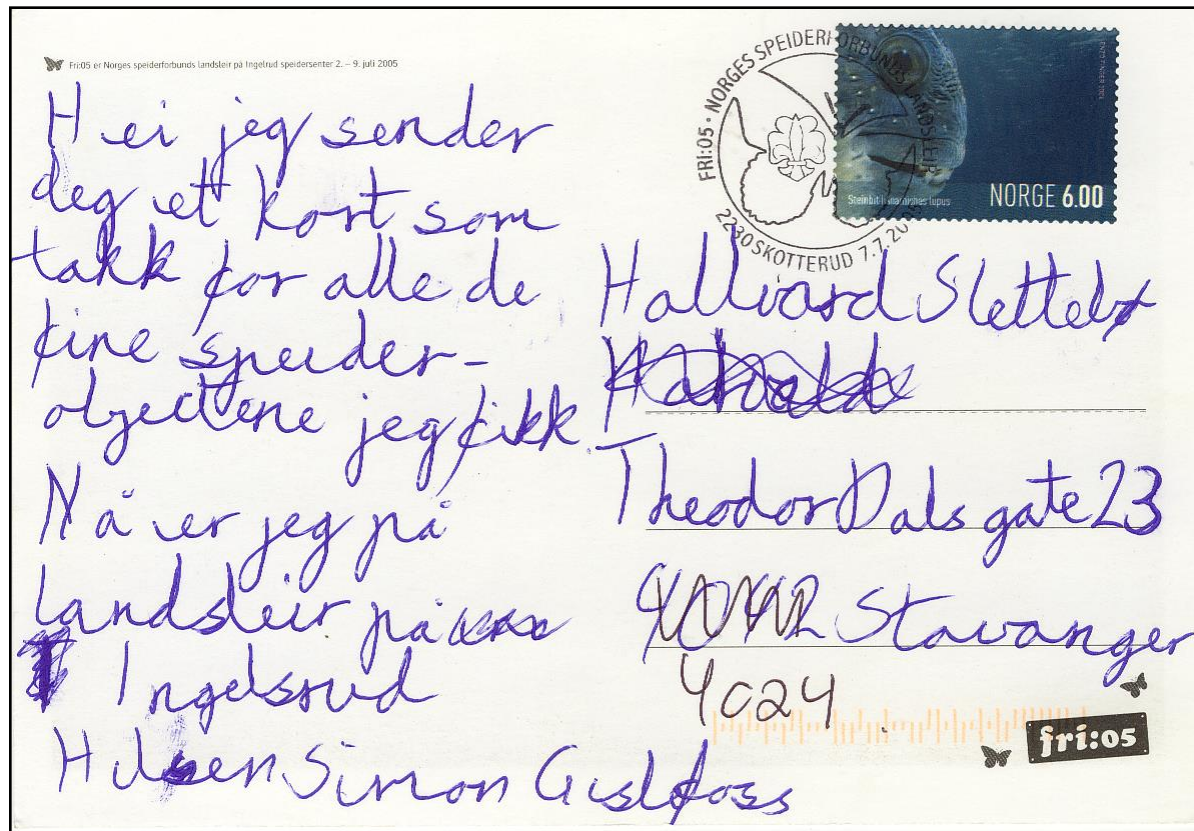 Fri:05 er Norges speiderforbunds landsleir på Ingelrud speidersenter 2. – 9. juli 2005
Hei jeg sender
deg et kort som
takk for alle de
fine speider-
objektene jeg fikk.
Nå er jeg på
landsleir på
Ingelsrud
Hilsen Simon Gislefoss
FRI:05 · NORGES SPEIDERFORBUNDS LANDSLEIR
2230 SKOTTERUD 7.7.2005
Steinbit
lupus
NORGE 6.00
Hallvard Slettebø
Theodor Dals gate 23
Stavanger
4024
fri:05